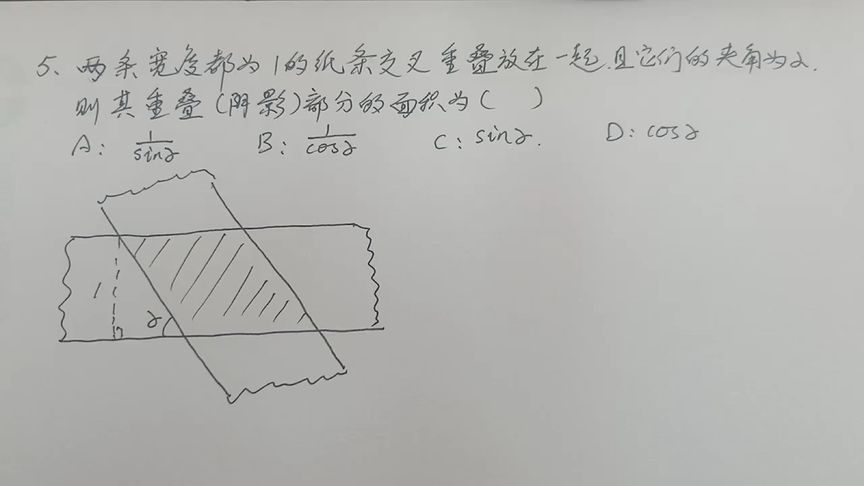 5、两条宽度都为1的纸条交叉重叠放在一起,且它们的夹角为α.
则其重叠(阴影)部分的面积为( )
A: 1/sinα B: 1/cosα C: sinα. D: cosα
1
α